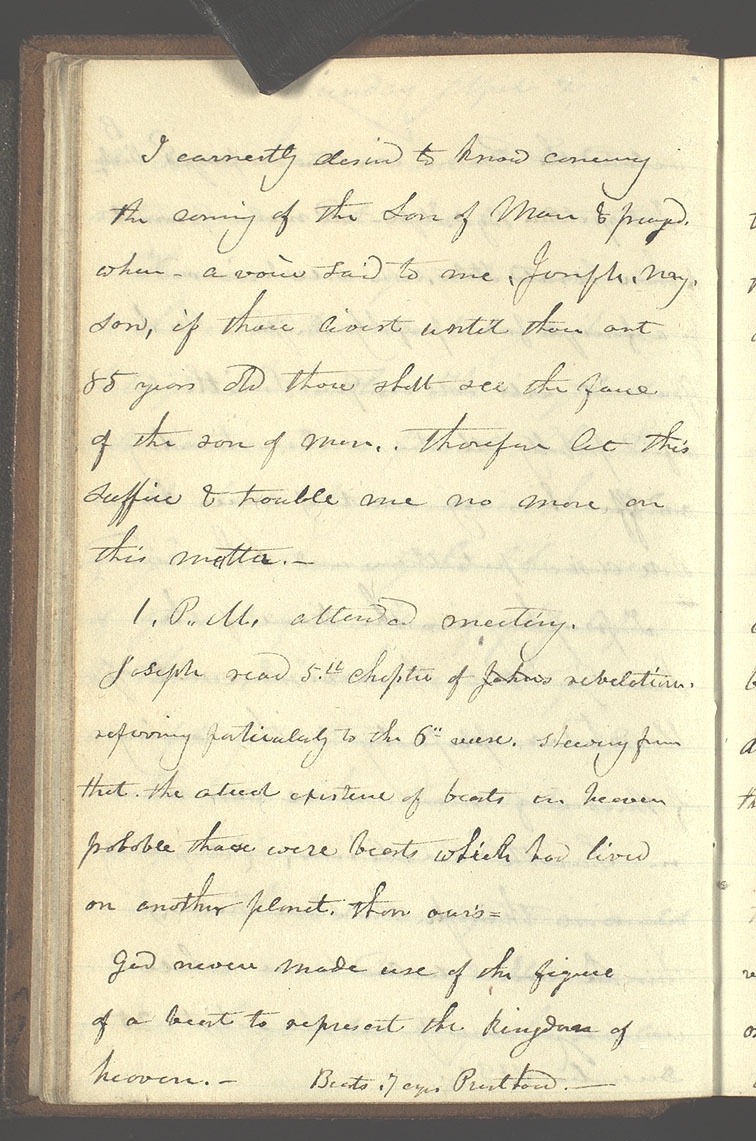 I earnestly desird to know concerng
the coming of the Son of Man & prayed.
when - a voice said to me, Joseph, my,
son, if thou livest until thou art
85 years old thou shalt see the face
of the son of man.. therefore let this
suffice & trouble me no more on
this matter.—
1, P.. M, attended meeting.
Joseph read 5.th chapter of Johns revelation.
referring particularly to the 6th verse. shewing from
that. the actual existence of beasts in heaven
probable those were beasts which had lived
on another planet. than our's=
God never made use of the figure
of a beast to represent the kingdom of
heaven.— Beasts. 7 eyes Priesthood.—